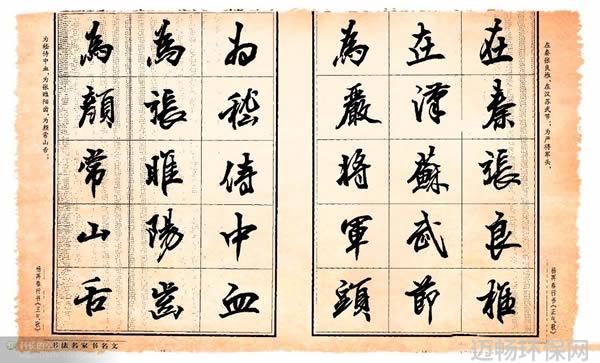 在秦张良椎，在汉苏武节；为严将军头，
杨再春行书《正气歌》
在秦張良椎
在漢蘇武節
為嚴將軍頭
為嵇侍中血
為張睢陽齒
為顏常山舌
为嵇侍中血。为张睢阳齿，为颜常山舌；
杨再春行书《正气歌》
书法名家书名文
迈畅环保网